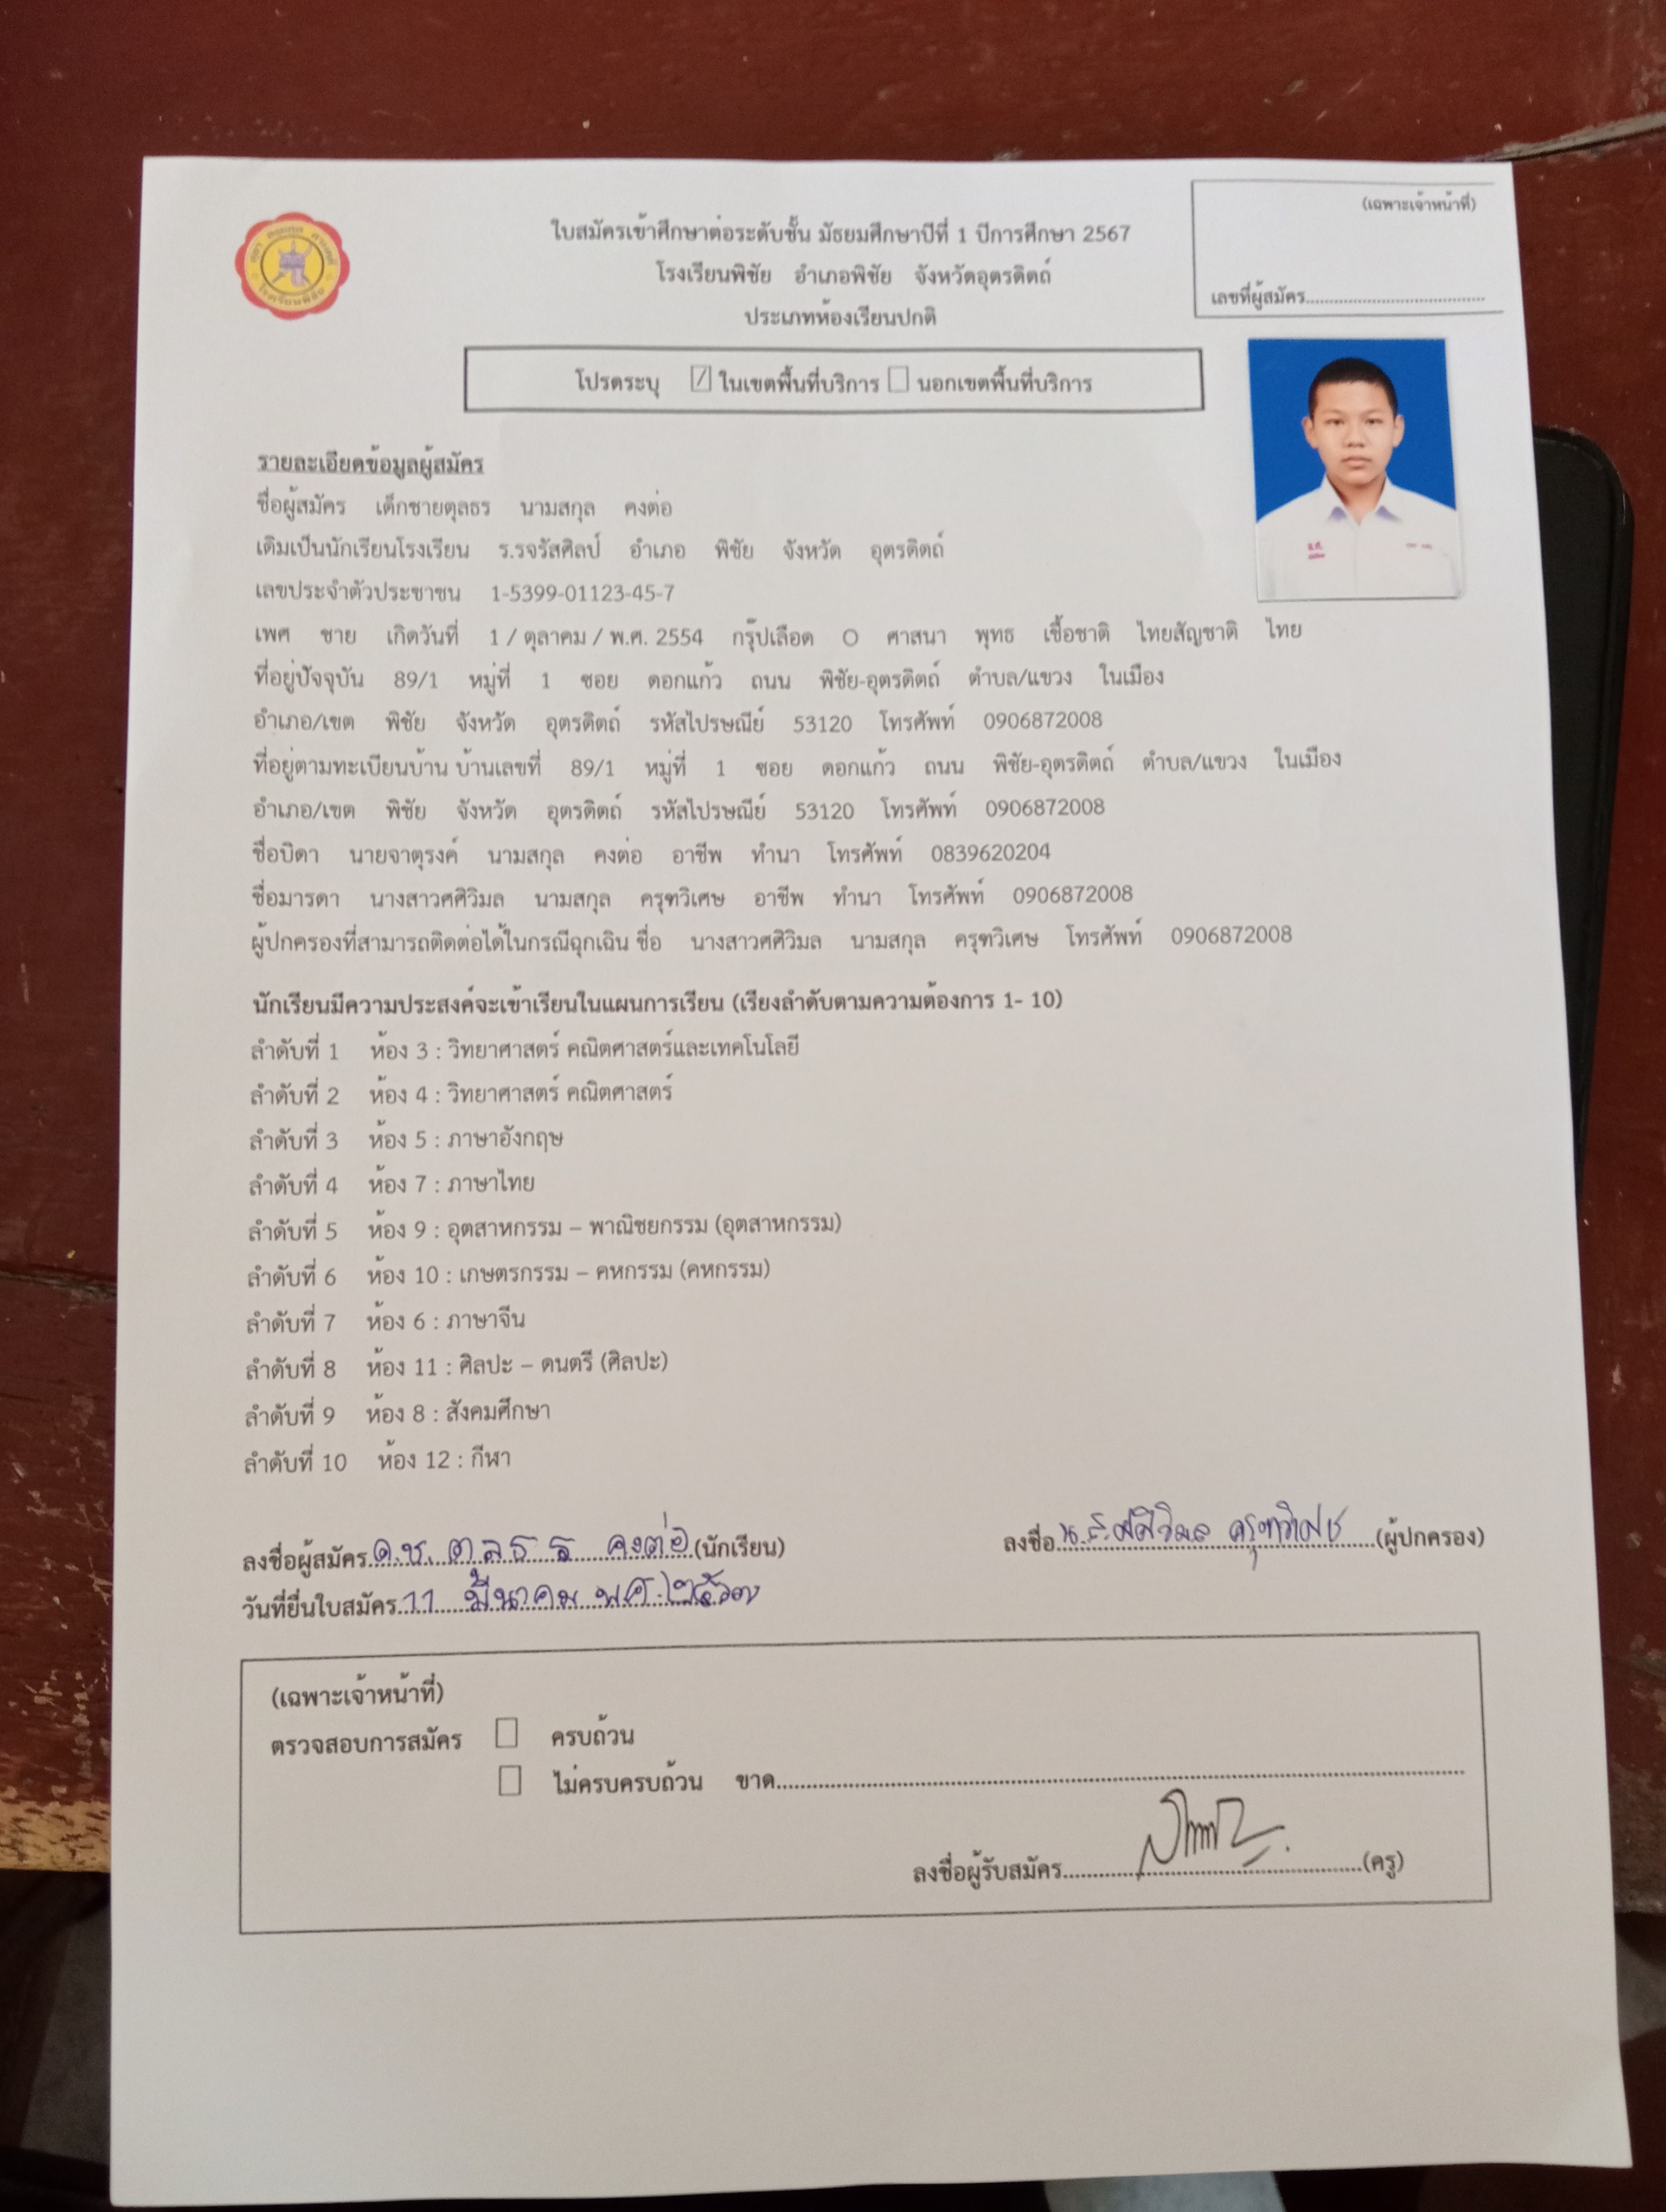 (เฉพาะเจ้าหน้าที่)
ใบสมัครเข้าศึกษาต่อระดับชั้น มัธยมศึกษาปีที่ 1 ปีการศึกษา 2567
โรงเรียนพิชัย อำเภอพิชัย จังหวัดอุตรดิตถ์
เลขที่ผู้สมัคร
ประเภทห้องเรียนปกติ
โรงเรียนพิชัย
โปรดระบุ ☑ ในเขตพื้นที่บริการ ☐ นอกเขตพื้นที่บริการ
รายละเอียดข้อมูลผู้สมัคร
ชื่อผู้สมัคร เด็กชายตุลธร นามสกุล คงต่อ
เดิมเป็นนักเรียนโรงเรียน ร.รจรัสศิลป์ อำเภอ พิชัย จังหวัด อุตรดิตถ์
เลขประจำตัวประชาชน 1-5399-01123-45-7
เพศ ชาย เกิดวันที่ 1 / ตุลาคม / พ.ศ. 2554 กรุ๊ปเลือด O ศาสนา พุทธ เชื้อชาติ ไทยสัญชาติ ไทย
ที่อยู่ปัจจุบัน 89/1 หมู่ที่ 1 ซอย ดอกแก้ว ถนน พิชัย-อุตรดิตถ์ ตำบล/แขวง ในเมือง
อำเภอ/เขต พิชัย จังหวัด อุตรดิตถ์ รหัสไปรษณีย์ 53120 โทรศัพท์ 0906872008
ที่อยู่ตามทะเบียนบ้าน บ้านเลขที่ 89/1 หมู่ที่ 1 ซอย ดอกแก้ว ถนน พิชัย-อุตรดิตถ์ ตำบล/แขวง ในเมือง
อำเภอ/เขต พิชัย จังหวัด อุตรดิตถ์ รหัสไปรษณีย์ 53120 โทรศัพท์ 0906872008
ชื่อบิดา นายจาตุรงค์ นามสกุล คงต่อ อาชีพ ทำนา โทรศัพท์ 0839620204
ชื่อมารดา นางสาวศศิวิมล นามสกุล ครุฑวิเศษ อาชีพ ทำนา โทรศัพท์ 0906872008
ผู้ปกครองที่สามารถติดต่อได้ในกรณีฉุกเฉิน ชื่อ นางสาวศศิวิมล นามสกุล ครุฑวิเศษ โทรศัพท์ 0906872008
นักเรียนมีความประสงค์จะเข้าเรียนในแผนการเรียน (เรียงลำดับตามความต้องการ 1- 10)
ลำดับที่ 1 ห้อง 3 : วิทยาศาสตร์ คณิตศาสตร์และเทคโนโลยี
ลำดับที่ 2 ห้อง 4 : วิทยาศาสตร์ คณิตศาสตร์
ลำดับที่ 3 ห้อง 5 : ภาษาอังกฤษ
ลำดับที่ 4 ห้อง 7 : ภาษาไทย
ลำดับที่ 5 ห้อง 9 : อุตสาหกรรม – พาณิชยกรรม (อุตสาหกรรม)
ลำดับที่ 6 ห้อง 10 : เกษตรกรรม – คหกรรม (คหกรรม)
ลำดับที่ 7 ห้อง 6 : ภาษาจีน
ลำดับที่ 8 ห้อง 11 : ศิลปะ – ดนตรี (ศิลปะ)
ลำดับที่ 9 ห้อง 8 : สังคมศึกษา
ลำดับที่ 10 ห้อง 12 : กีฬา
ลงชื่อผู้สมัคร ด.ช. ตุลธร คงต่อ (นักเรียน) ลงชื่อ น.ส.ศศิวิมล ครุฑวิเศษ (ผู้ปกครอง)
วันที่ยื่นใบสมัคร 11 มีนาคม พ.ศ. ๒๕๖๗
(เฉพาะเจ้าหน้าที่)
ตรวจสอบการสมัคร ☐ ครบถ้วน
☐ ไม่ครบครบถ้วน ขาด
ลงชื่อผู้รับสมัคร (ครู)